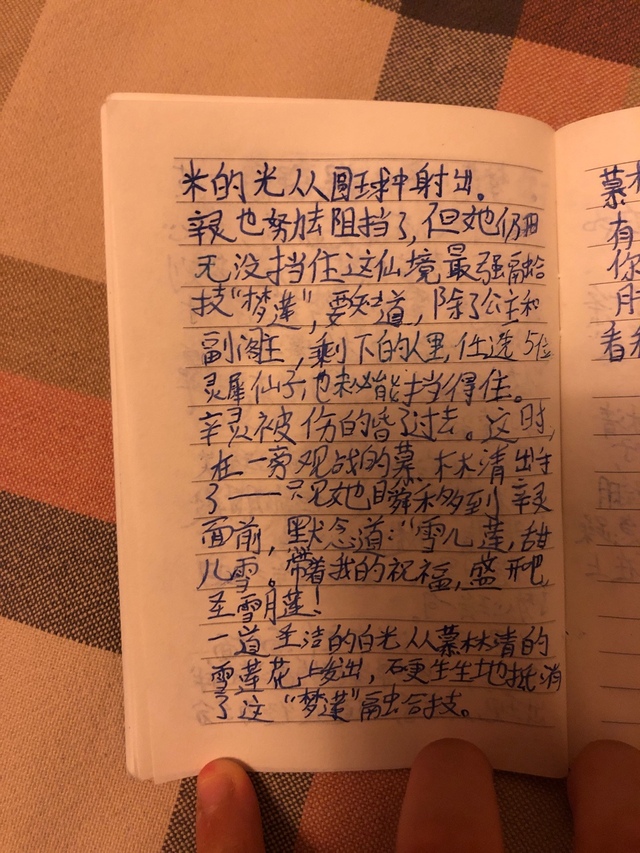 米的光从圆球中射出。
辛灵也努力去阻挡了，但她仍旧
无没挡住这仙境最强融合
技“梦莲”，要知道，除了公主和
副阁主，剩下的人里，任选5位
灵犀仙子也未必能挡得住。
辛灵被伤的昏了过去。这时，
在一旁观战的慕林清出手
了——只见她瞬移到辛灵
面前，默念道：“雪儿莲，甜
儿雪。带着我的祝福，盛开吧，
圣雪月莲！
一道圣洁的白光从慕林清的
雪莲花上发出，硬生生地抵消
了这“梦莲”融合技。
慕林
有
你
月
看